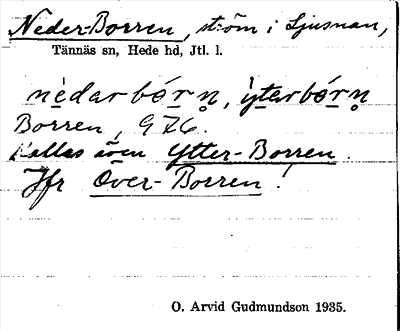 Neder-Borren, ström i Ljusnan,
Tännäs sn, Hede hd, Jtl. l.
nèdarbǿrn̥, ỳtərbǿrn̥
Borren, G76.
Kallas även Ytter-Borren.
Jfr Över-Borren!
O. Arvid Gudmundson 1935.